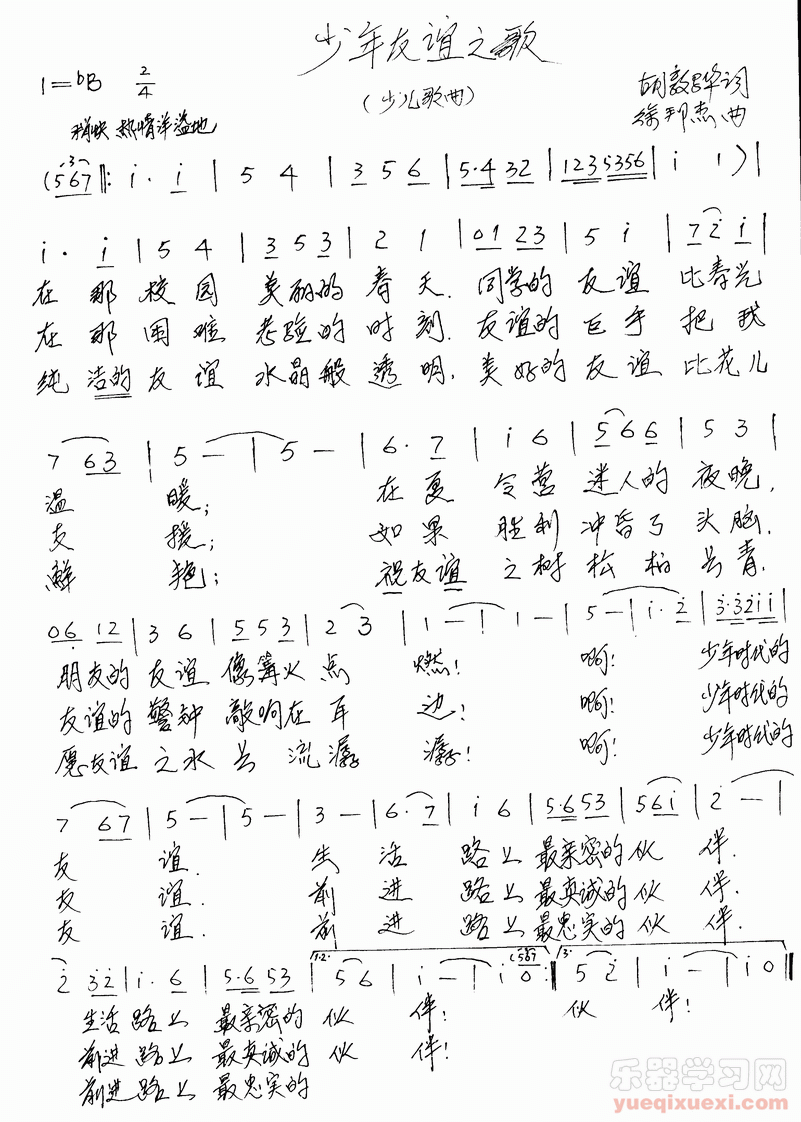 少年友谊之歌
1=bB 2/4
(少儿歌曲)
胡敦骅词
徐邦杰曲
稍快 热情洋溢地
(567 ‖: i· i | 5 4 | 3 5 6 | 5·4 32 | 123 5356 | i 1 ) |
i· i | 5 4 | 3 5 3 | 2 1 | 01 23 | 5 i | 7 2 i |
在那校园 美丽的春天. 同学的友谊 比春光
在那困难 考验的时刻. 友谊的巨手 把我
纯洁的友谊 水晶般透明. 美好的友谊 比花儿
7 63 | 5 — | 5 — | 6· 7 | i 6 | 5 6 6 | 5 3 |
温暖; 在夏令营 迷人的夜晚,
支援; 如果胜利 冲昏了头脑.
鲜艳; 祝友谊之树 松柏长青.
06 12 | 3 6 | 5 5 3 | 2 3 | 1 — | 1 — | 5 — | i· 2 | 3·32ii |
朋友的友谊 像篝火点燃! 啊! 少年时代的
友谊的警钟 敲响在耳边! 啊! 少年时代的
愿友谊之水 长流潺潺! 啊! 少年时代的
7 67 | 5 — | 5 — | 3 — | 6· 7 | i 6 | 5·653 | 56i | 2 — |
友谊. 生活路上 最亲密的伙伴.
友谊. 前进路上 最真诚的伙伴.
友谊. 前进路上 最忠实的伙伴.
2 32 | i· 6 | 5·6 53 | 1.2. 5 6 | i — | i 0 (567 :‖ 3. 5 2 | i — | i 0 ‖
生活路上 最亲密的伙伴! 伙伴!
前进路上 最真诚的伙伴!
前进路上 最忠实的
乐器学习网
yueqixuexi.com